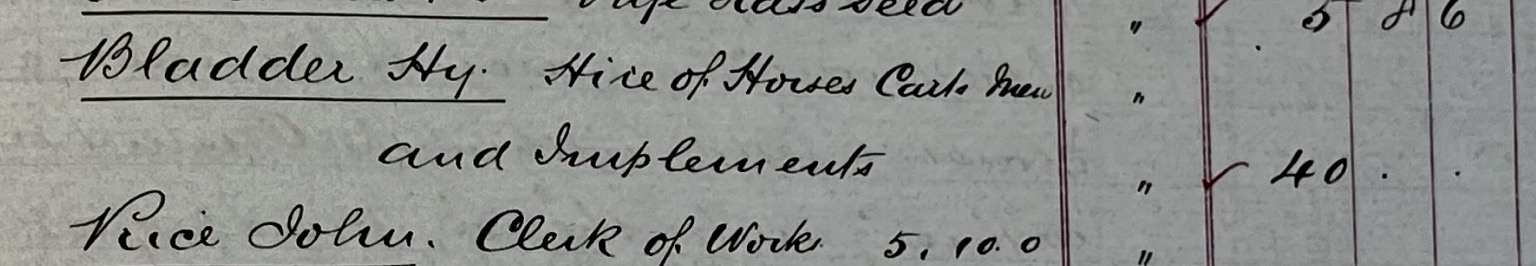 Grass Seed " 5 8 6
Bladder Hy. Hire of Horses Carts Men "
and Implements " 40 . .
Price John. Clerk of Works 5. 10. 0 "